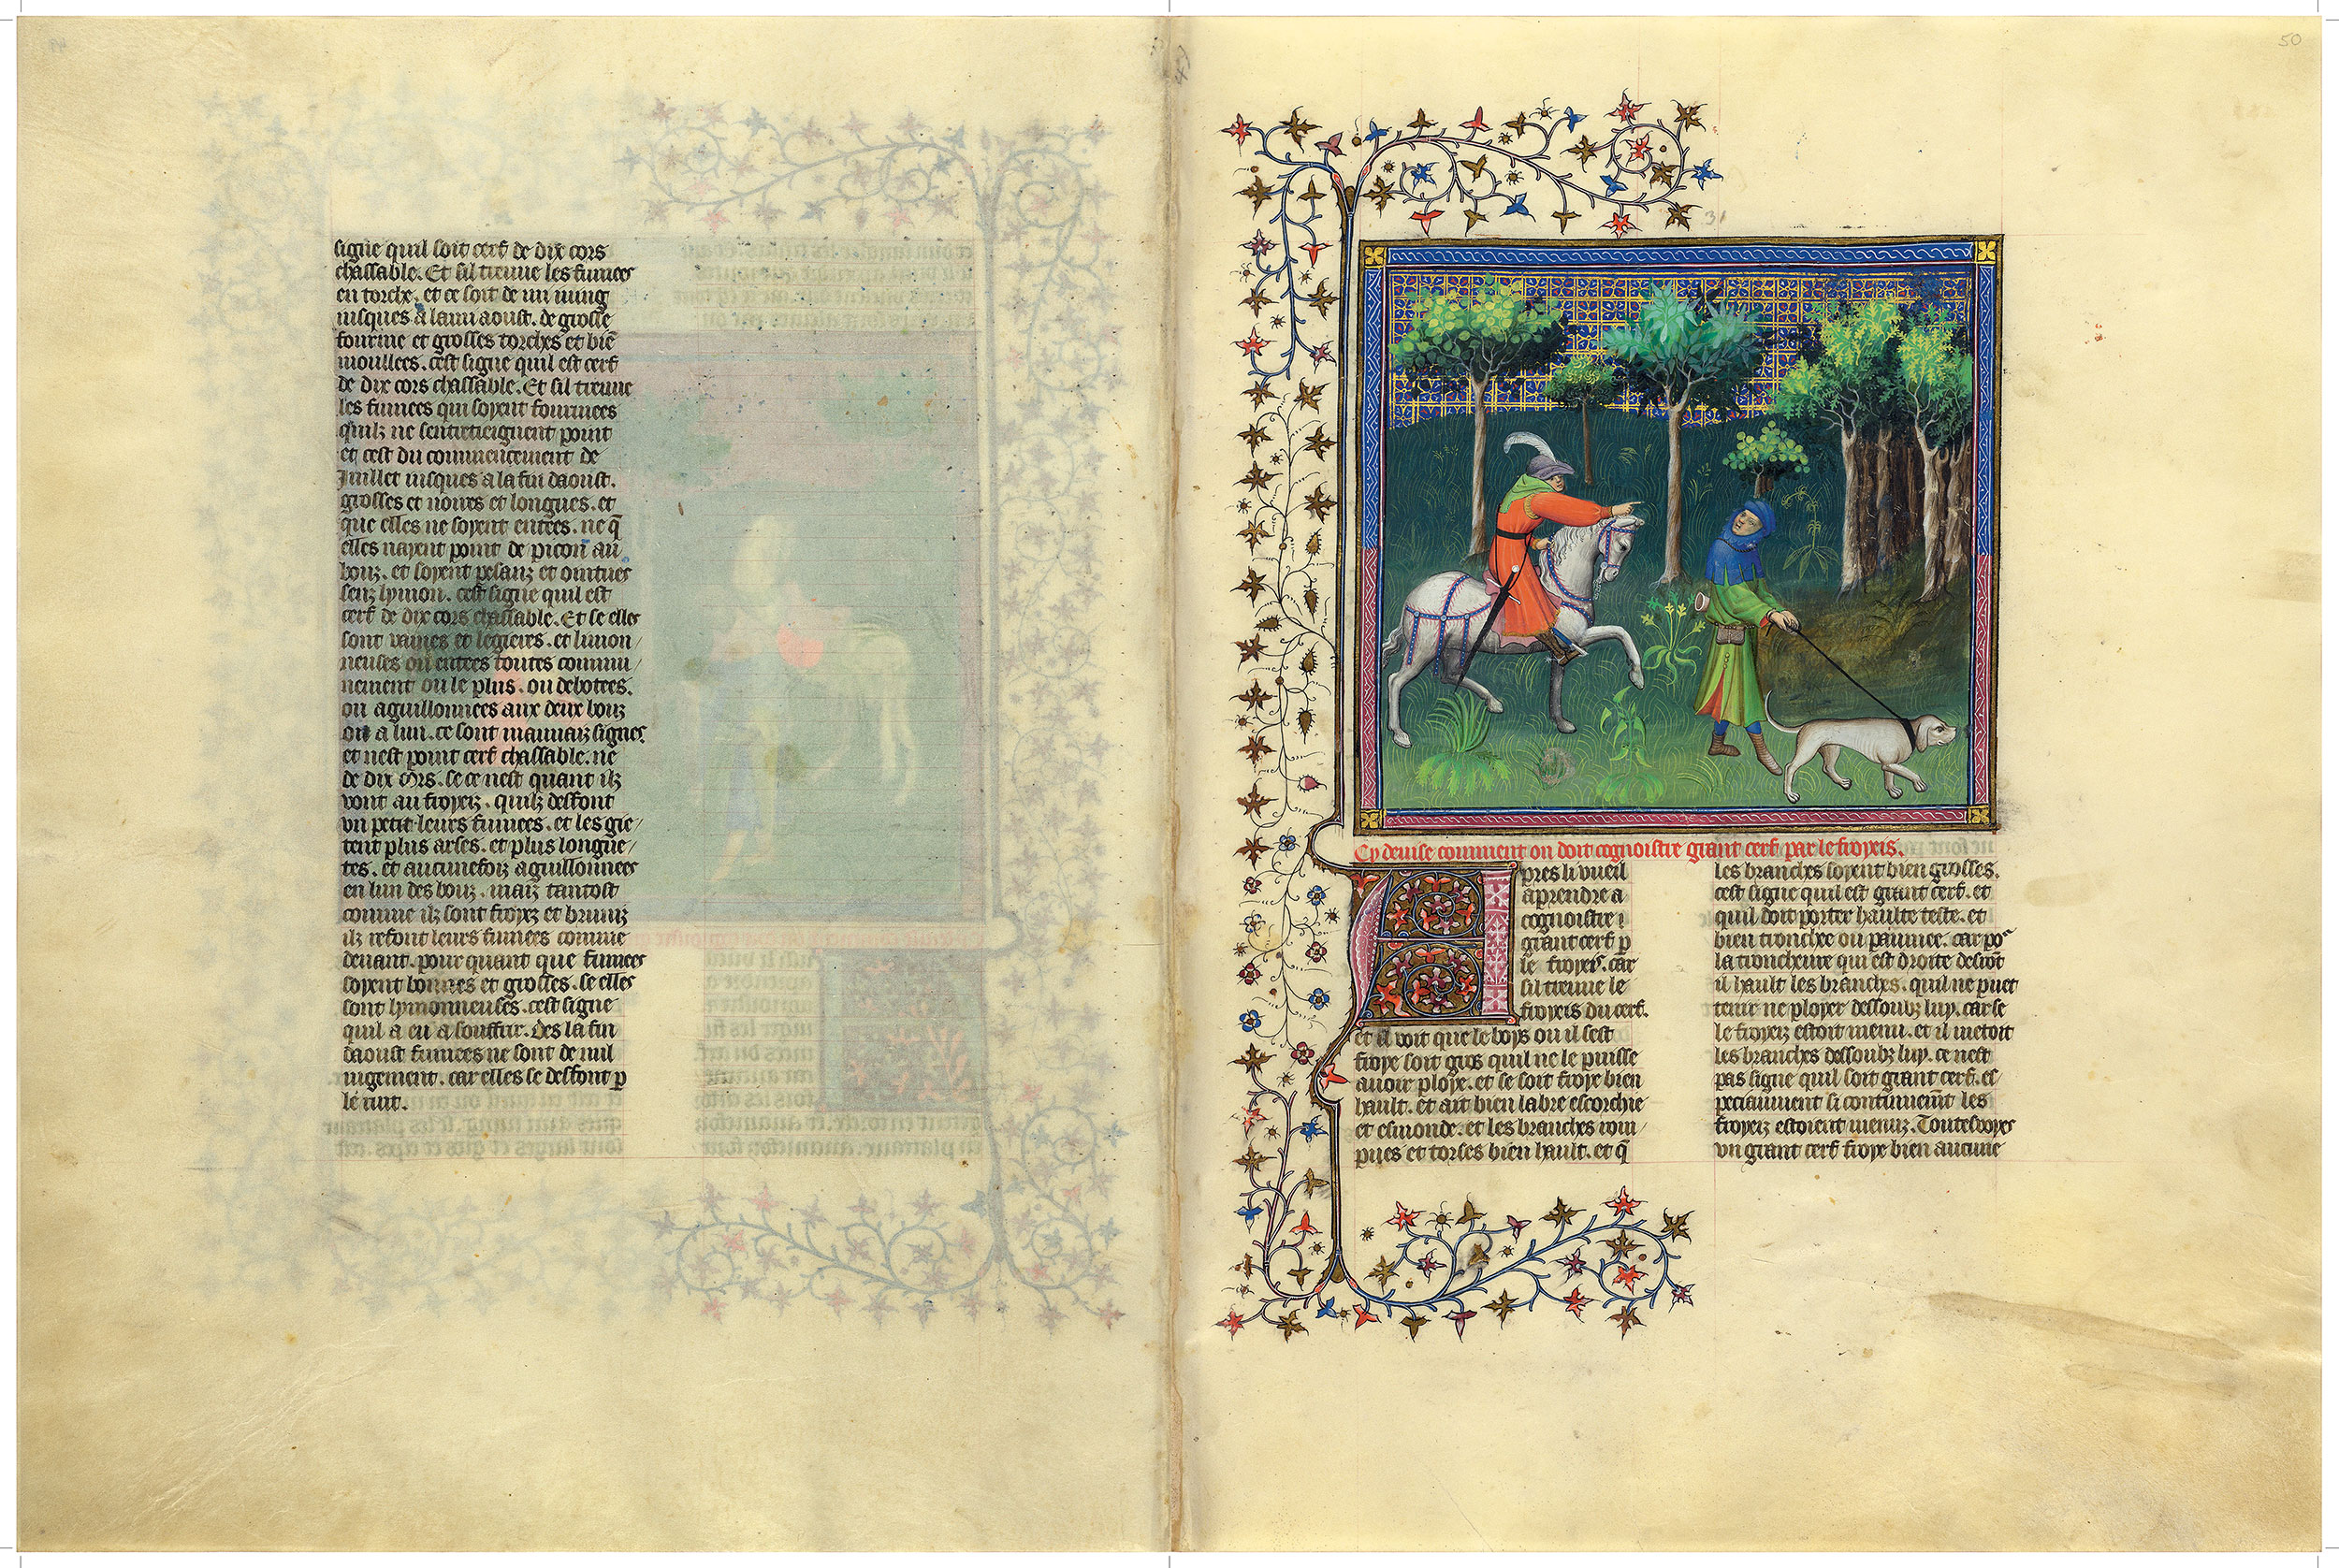 signe quil soit cerf de dix cors
chassable. Et sil treuue les fumees
en torche. et ce soit de mi iuing
iusques a la mi aoust. de grosse
fourme et grosses torches et biē
moullees. cest signe quil est cerf
de dix cors chassable. Et sil treuue
les fumees qui soyent fourmees
quilz ne sentretieignent point
et cest du commencement de
Juillet iusques a la fin daoust.
grosses et noires et longues. et
que elles ne soyent entees. ne q̄
elles nayent point de picon au
bouz. et soyent pesanz et ointues
senz lymon. cest signe quil est
cerf de dix cors chassable. Et se elles
sont vaines et legieres. et limon/
neuses ou entees toutes commu/
nement ou le plus. ou debotees.
ou aguillonnees aux deux bouz
ou a lun. ce sont mauuaiz signes.
et nest point cerf chassable. ne
de dix cors. se ce nest quant ilz
vont au froyeiz. quilz desfont
vn petit leurs fumees. et les gie/
tent plus arses. et plus longue/
tes. et aucunefoiz aguillonnees
en lun des bouz. maiz tantost
comme ilz sont froyez et bruniz
ilz refont leurs fumees comme
deuant. pour quant que fumees
soyent bonnes et grosses. se elles
sont lymonneuses. cest signe
quil a eu a souffrir. Des la fin
daoust fumees ne sont de nul
iugement. car elles se desfont p
le ruit.
50
31
Cy deuise comment on doit cognoistre grant cerf par le froyeis.
Apres li vueil
aprendre a
cognoistre j
grant cerf p
le froyeis. car
sil treuue le
froyeis du cerf.
et il voit que le boys ou il sest
froye soit gros quil ne le puisse
auoir ploye. et se soit froye bien
hault. et ait bien labre escorchie
et esmonde. et les branches rom/
pues et torses bien hault. et q̄
les branches soyent bien grosses.
cest signe quil est grant cerf. et
quil doit porter haulte teste. et
bien tronchee ou paumee. car po
la troncheure qui est droite desrōt
il hault les branches. quil ne puet
tenir ne ployer dessoubz luy. car se
le froyeiz estoit menu. et il metoit
les branches dessoubz luy. ce nest
pas signe quil soit grant cerf. es
peciaument si continuemt les
froyeiz estoient menuz. Toutesvoyes
vn grant cerf froye bien aucune